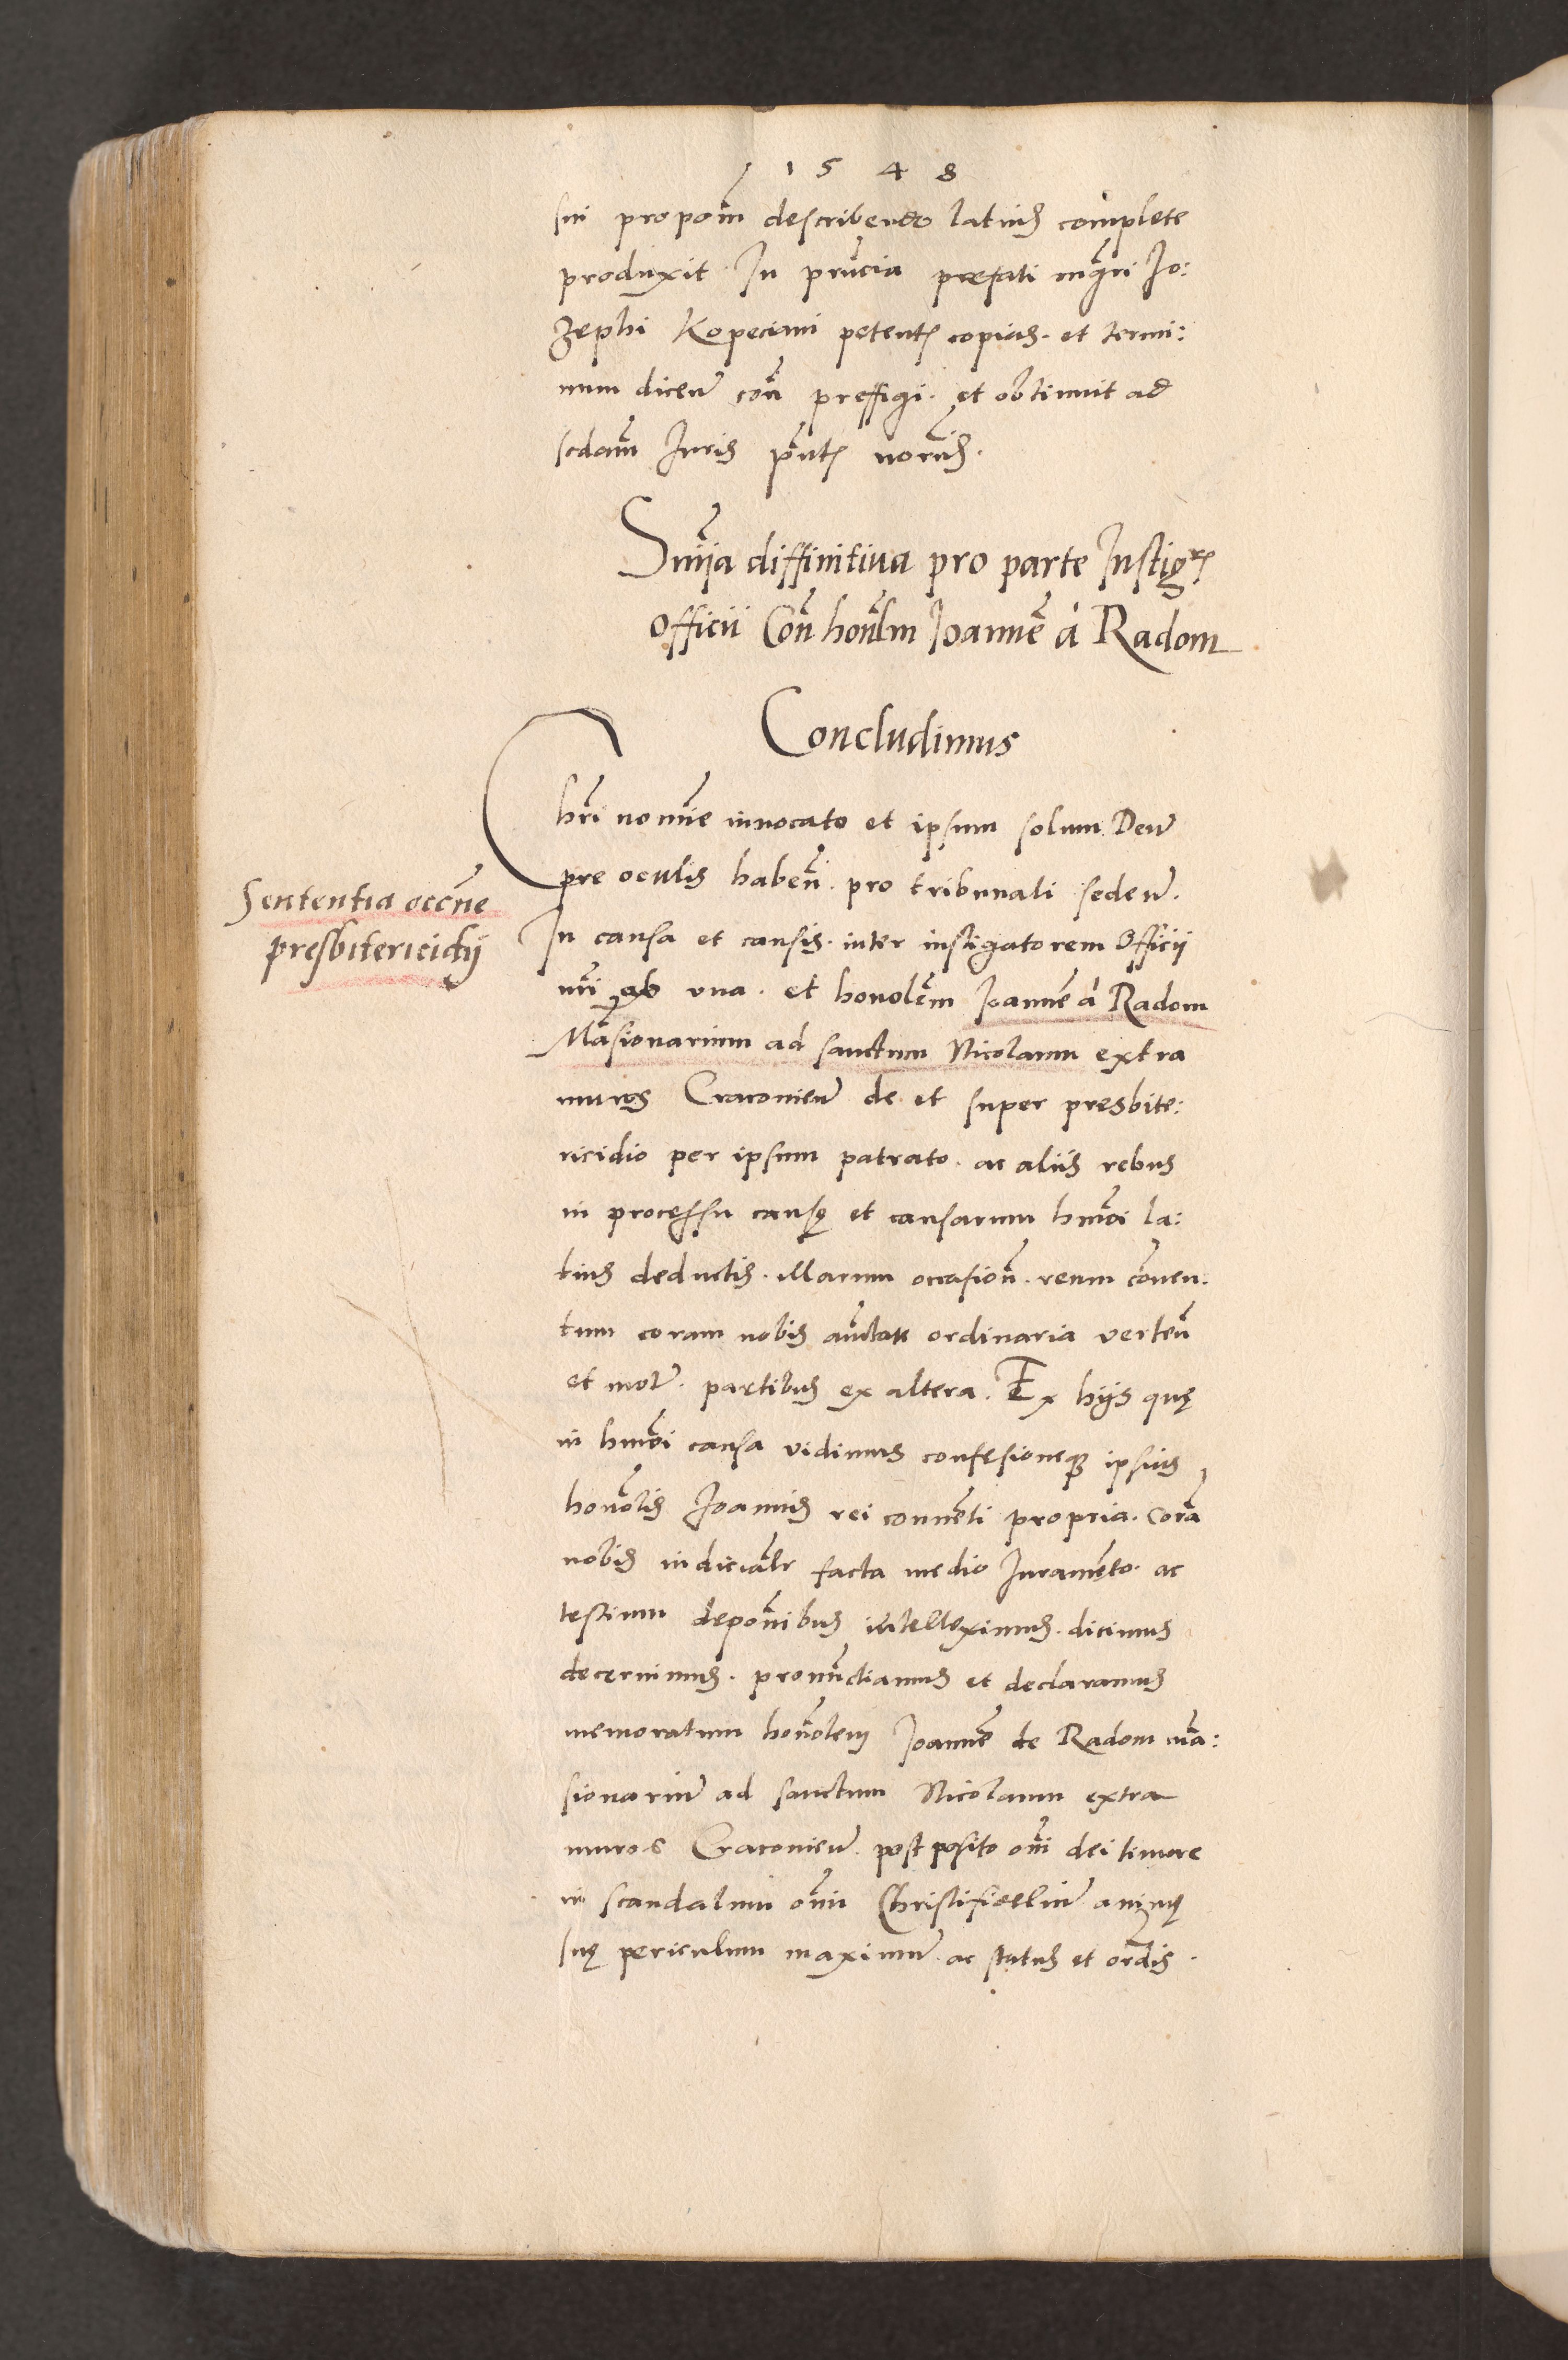 1548
sui propom̃ describendo latius complete
produxit In prñcia prefati mg̃ri Jo:
zephi Kopeciani petentꝭ copias. et termi:
num dicenđ con̄ preffigi. et obtinuit ad
scđam Juris pñtꝭ nor̃is.
Sn̄ia diffinitiua pro parte Instigrꝭ
Officii Con̄ honl̃m Joannē à Radom
Concludimus
Chri nomīe inuocato et ipsum solum Deū
pre oculis habeñ. pro tribunali sedeñ.
Sententia occn̄e
presbitericidij
In causa et causis. inter instigatorem Officii
nr̃i ab vna. et honolẽm Joannē à Radom
Mãsionarium ad sanctum Nicolaum extra
muros Cracouieñ de et super presbite:
ricidio per ipsum patrato. ac aliis rebus
in processu causę et causarum hmōi la:
tius deductis. illarum occasioñ. reum conuen:
tum coram nobis auctate ordinaria verteñ
et motꝭ. partibus ex altera. Ex hijs quę
in hmōi causa vidimus confesioneqꝫ ipsius
honōlis Joannis rei conuēti propria. Corā
nobis iudicialr̃ facta medio Juramēto. ac
testium depon̄ibus intelleximus. dicimus
decernimus. pronūctiamus et declaramus
memoratum honōlem Joannē de Radom mā:
sionariū ad sanctum Nicolaum extra
muros Cracouieñ. post posito om̄i dei timore
in scandalum om̄iū Christifideliū animę
suę periculum maximū. ac status et ordīs.